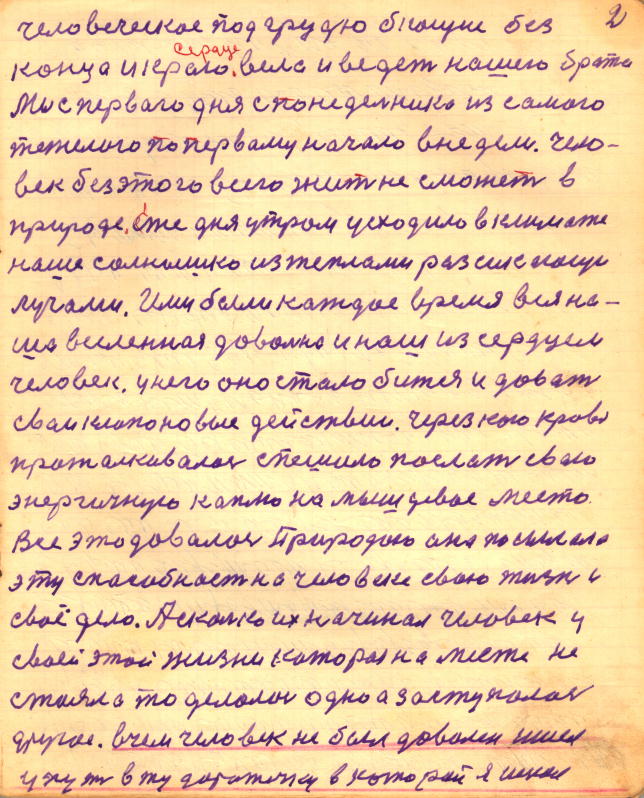 2
человеческое под грудю бющие без
сердце
конца и краю. вела и ведет нашего брата
Мы с перваго дня с понеделника из самого
тяжелого по перваму начало в недели. чело-
век без этого всего жит не сможет в
природе. Же дня утром усходило в климате
наше солнышко из теплами
лучами. Ими были каждое время вся на-
ша вселенная доволна и наш из сердцем
человек. у него оно стало бится и доват
сваи клопоновые действии. Через кого кровь
проталкивалас спешило послат свою
энергичную каплю на мышцевое место
Все это довалос Природою она посылала
эту способност на человеке свою жизн и
своё дело. А сколко их начинал человек у
своей этой жизни каторая на месте не
стояла то делалос одно а заступалос
другое. в чем человек не был доволен шел
у пут в ту дароточку в которой я